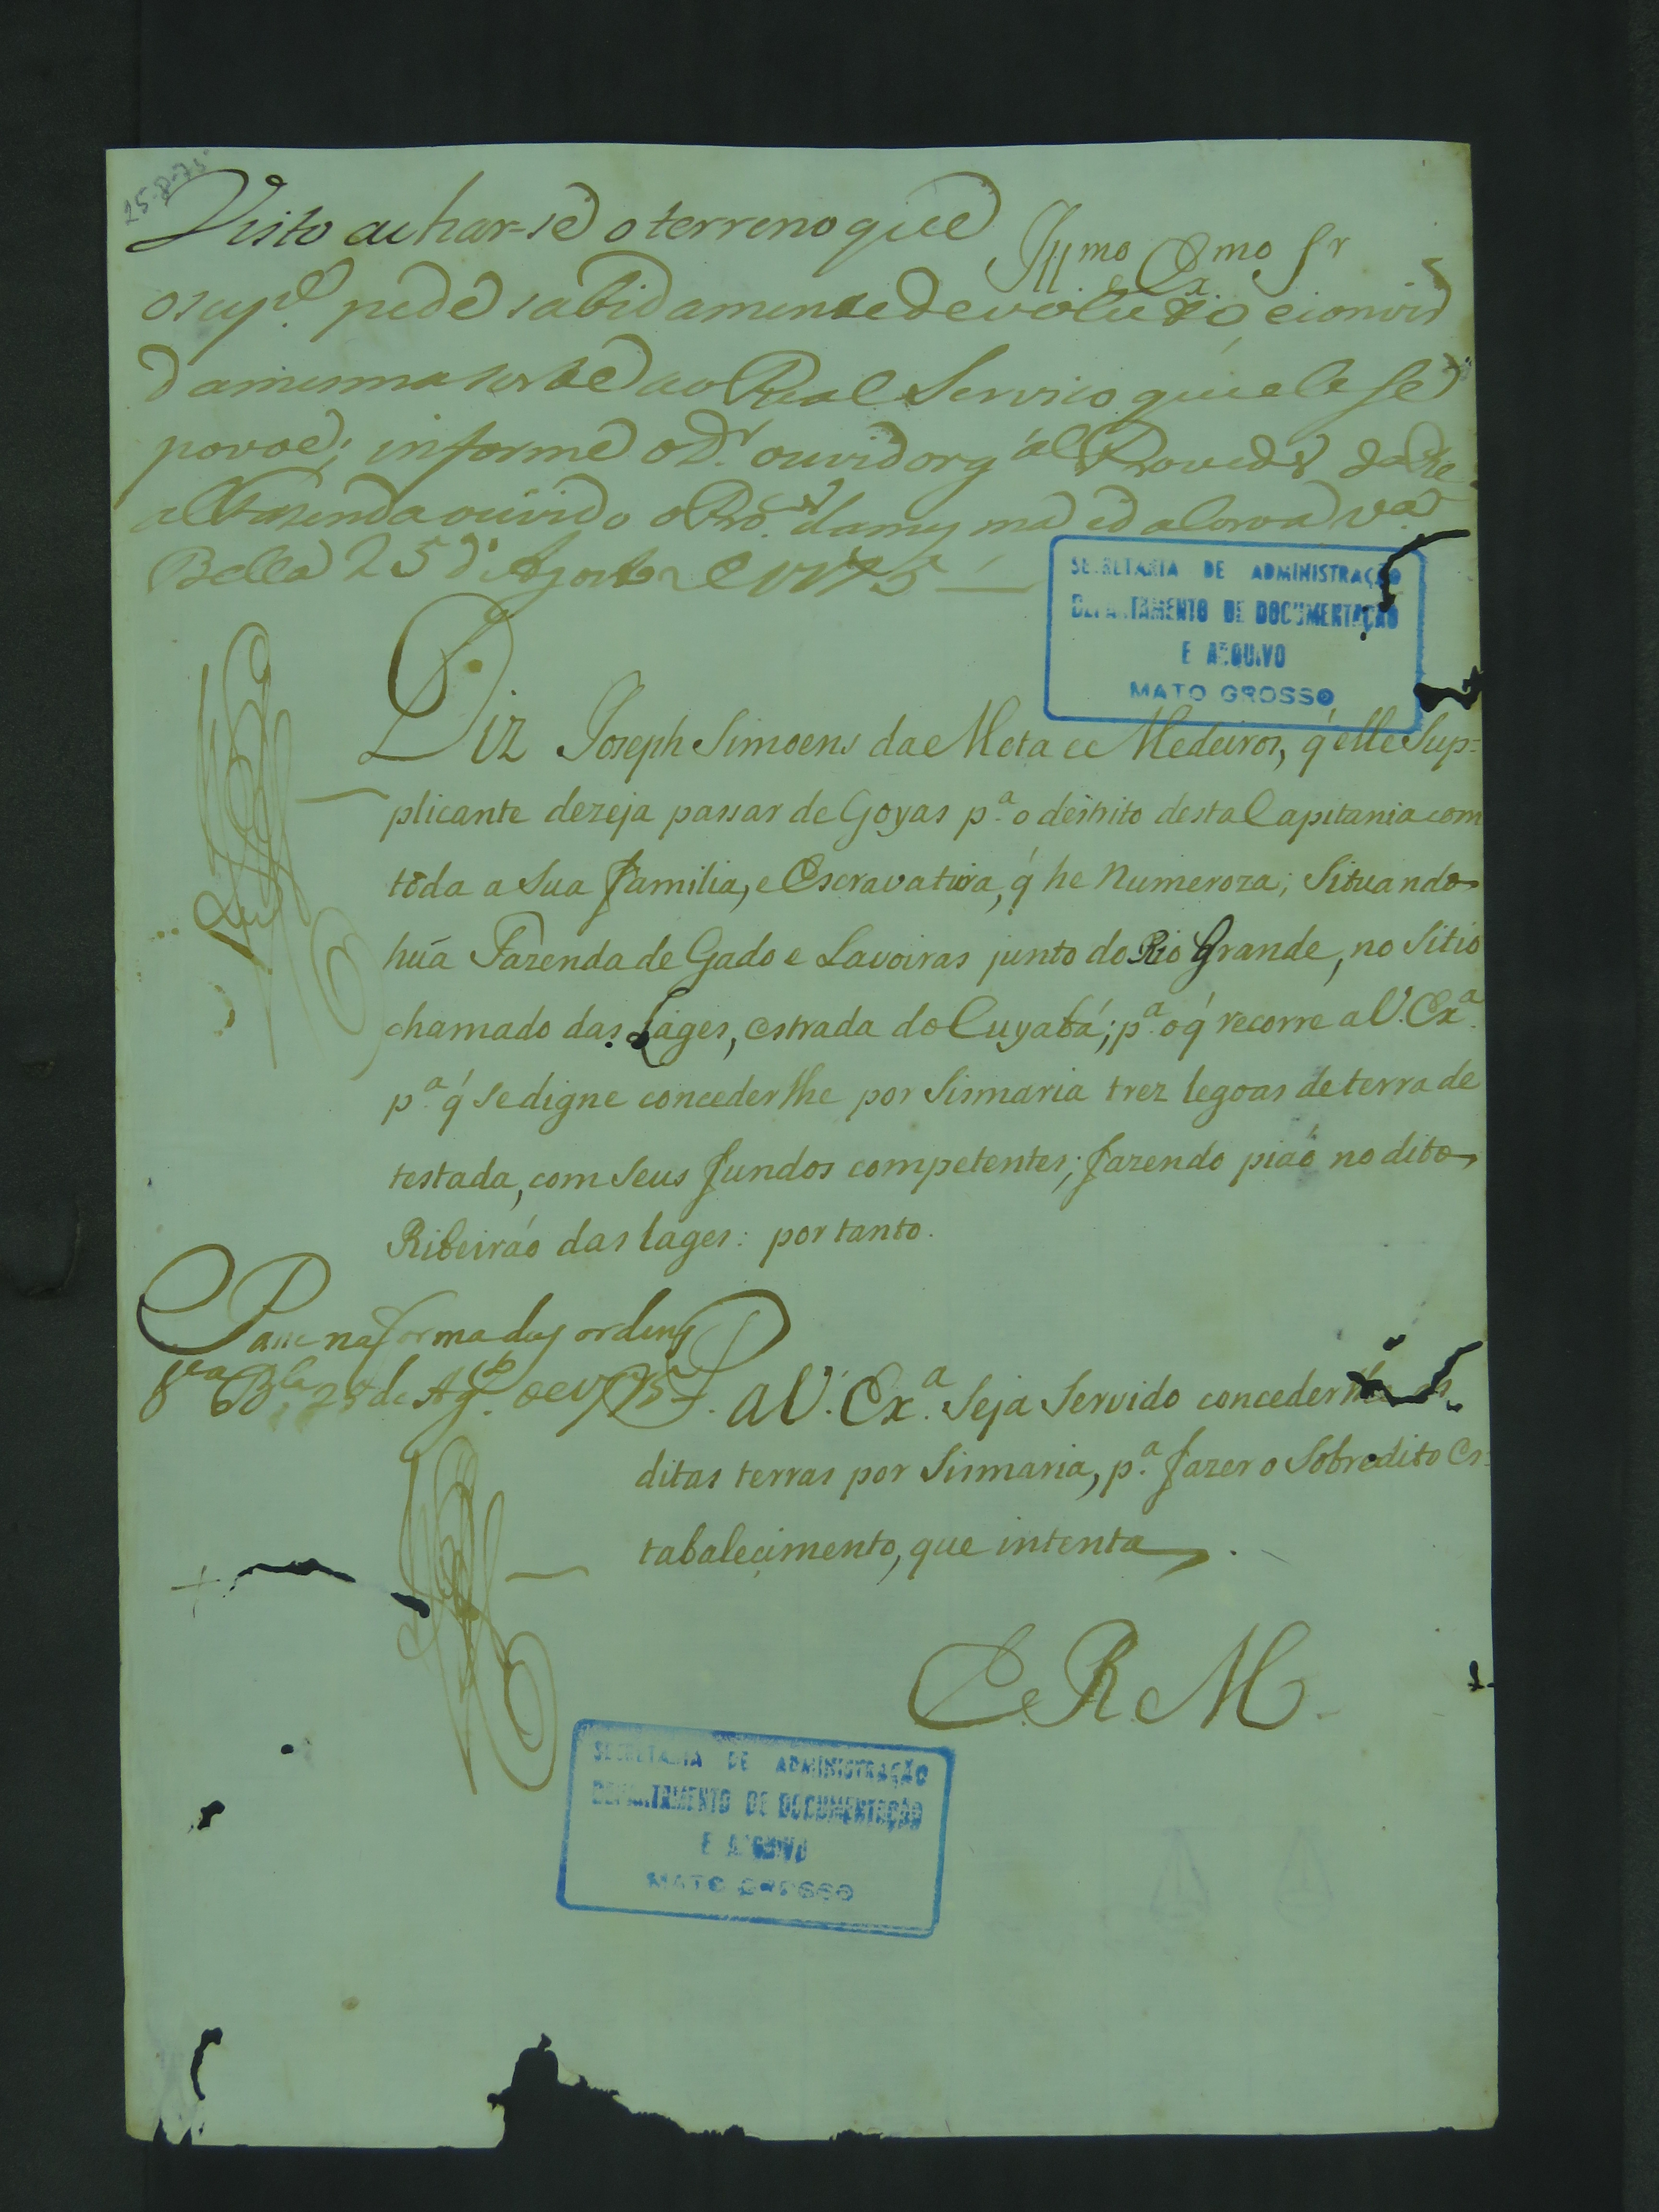 25-8-75
Visto achar-se o terreno que
Ill.mo e Ex.mo Sr
o sup.e pede sabidamente devoluto, e convir
da mesma sorte ao Real Serviço que ele se
povoe; informe o D.r ouvidor g.al Proved.or da Re-
al Fazenda ouvido o Pro.dor da mesma e da Coroa V.a
Bella 25 d'Agosto de 1775
SECRETARIA DE ADMINISTRAÇÃO
DEPARTAMENTO DE DOCUMENTAÇÃO
E ARQUIVO
MATO GROSSO
Diz Joseph Simoens da Mota e Medeiros, q́ elle Sup=
plicante dezeja passar de Goyas p.a o destrito desta Capitania com
tôda a Sua Familia, e Escravatura, q́ he Numeroza; Situando
huã Fazenda de Gado e Lavoiras junto do Rio Grande, no Sitio
chamado das Lages, estrada do Cuyabá; p.a o q́ recorre a V. Ex.a
p.a q́ Se digne conceder lhe por Sismaria trez legoas de terra de
testada, com Seus fundos competentes; fazendo piaó no dito
Ribeiráo das lages: por tanto.
Passe na forma das ordens
V.a B.la 28 de Ag.to de 1775
P. a V. Ex.a Seja Servido conceder lhe as
ditas terras por Sismaria, p.a fazer o Sobredito Es=
tabaleçimento, que intenta.
E. R. M.
SECRETARIA DE ADMINISTRAÇÃO
DEPARTAMENTO DE DOCUMENTAÇÃO
E ARQUIVO
MATO GROSSO